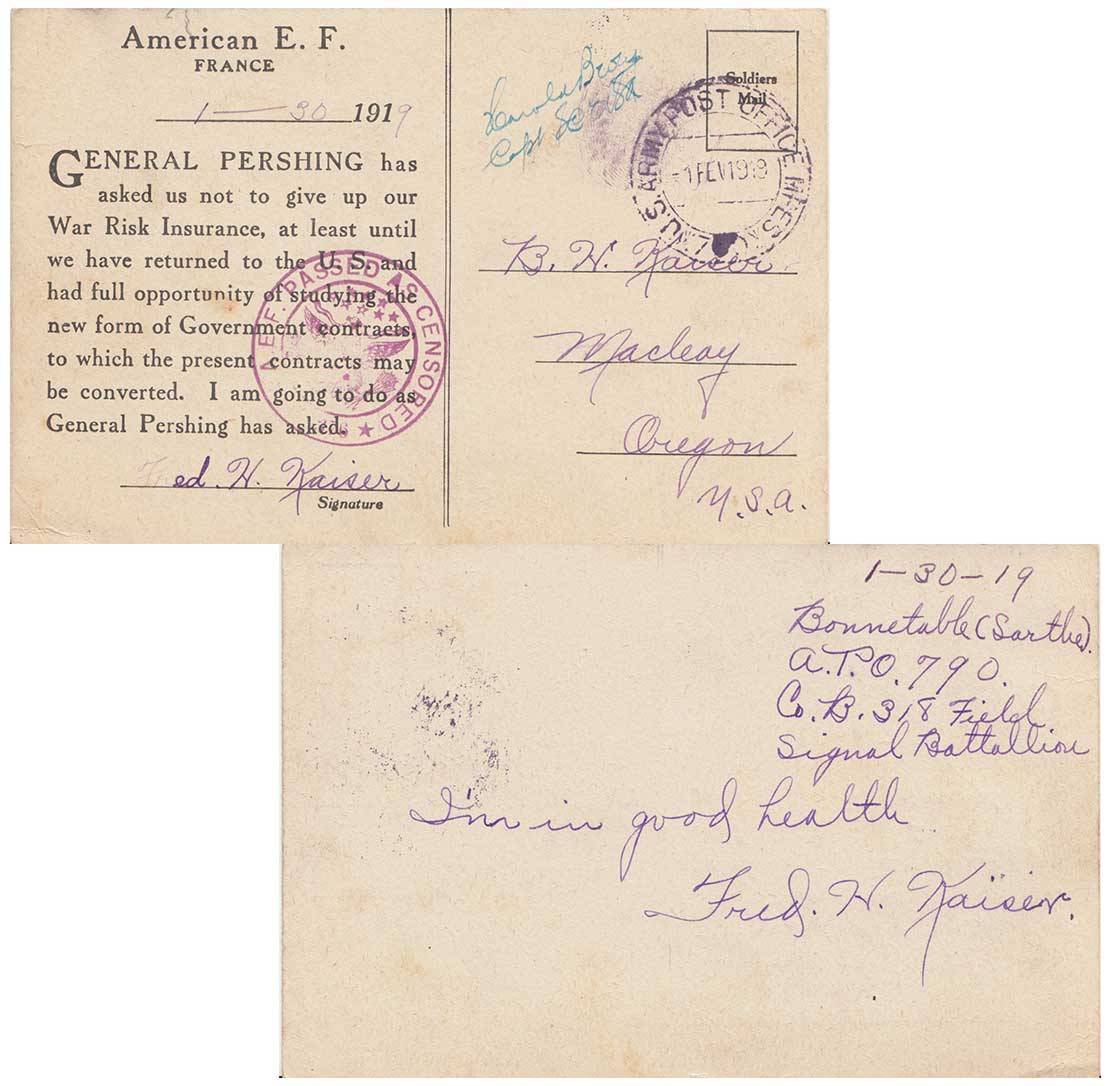 American E. F.
FRANCE
1 — 30 1919
GENERAL PERSHING has
asked us not to give up our
War Risk Insurance, at least until
we have returned to the U. S. and
had full opportunity of studying the
new form of Government contracts,
to which the present contracts may
be converted. I am going to do as
General Pershing has asked.
Fred. H. Kaiser
Signature
A.E.F. PASSED AS CENSORED
Capt
Soldiers
Mail
U.S. ARMY POST OFFICE
1 FEV 1919
B. H. Kaiser
Macleay
Oregon
U.S.A.
1-30-19
Bonnetable (Sarthe).
A.P.O. 790.
Co. B. 318 Field
Signal Battallion
I'm in good health
Fred. H. Kaiser.